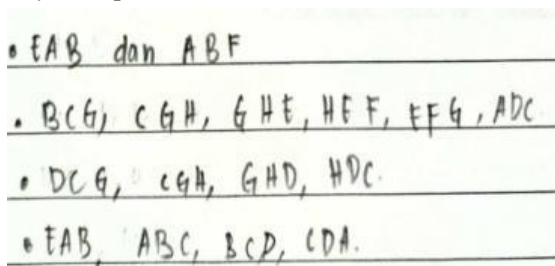 • EAB dan ABF
• BCG, CGH, GHE, HEF, EFG, ADC
• DCG, CGH, GHD, HDC.
• EAB, ABC, BCD, CDA.